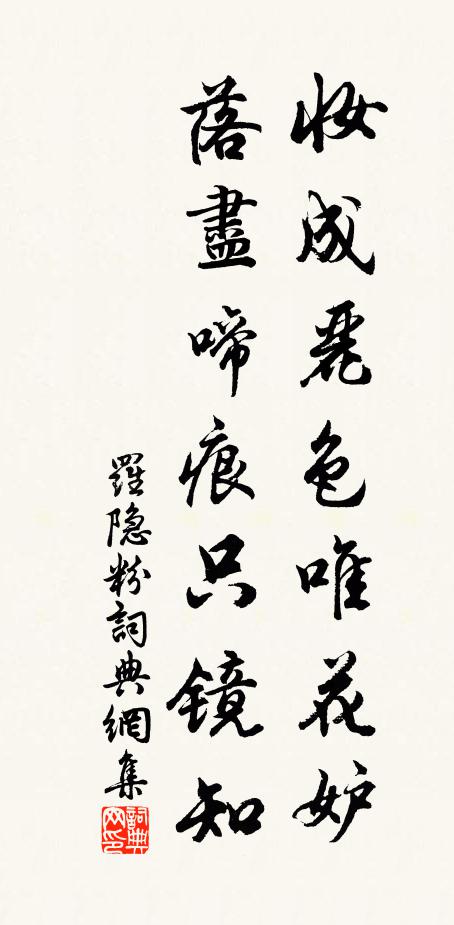 妆成麗色唯花妒
落盡啼痕只镜知
羅隐粉詞典網集
詞典网印